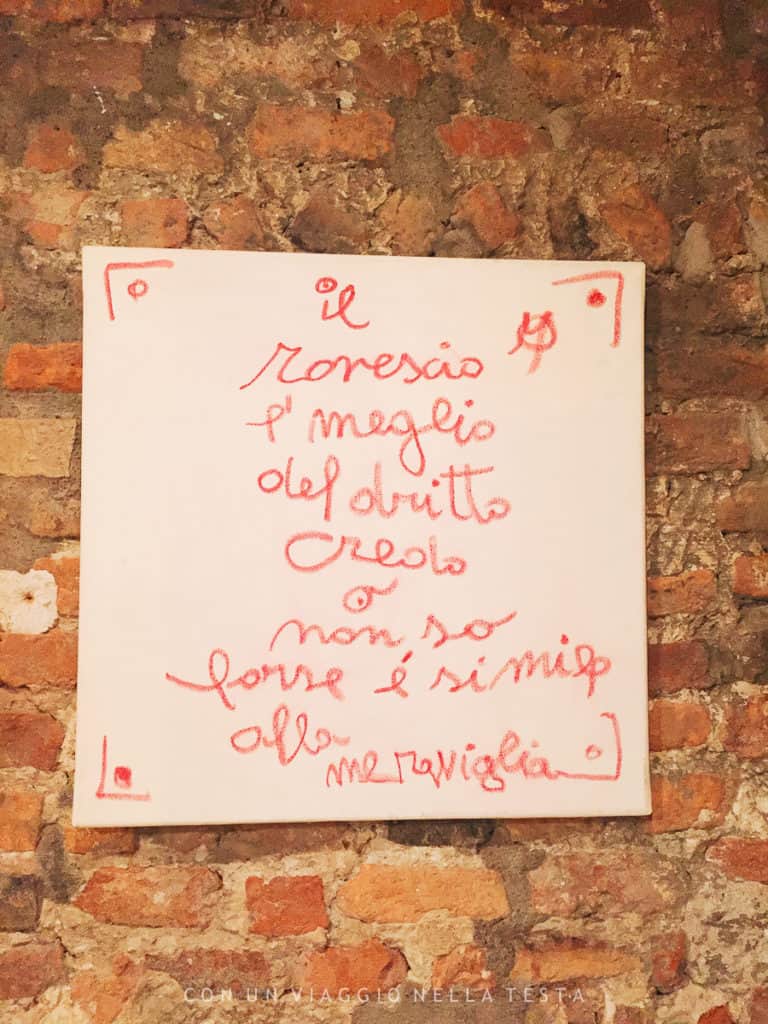 il
rovescio
e' meglio
del dritto
credo
o
non so
forse é simile
alla
meraviglia
CON UN VIAGGIO NELLA TESTA